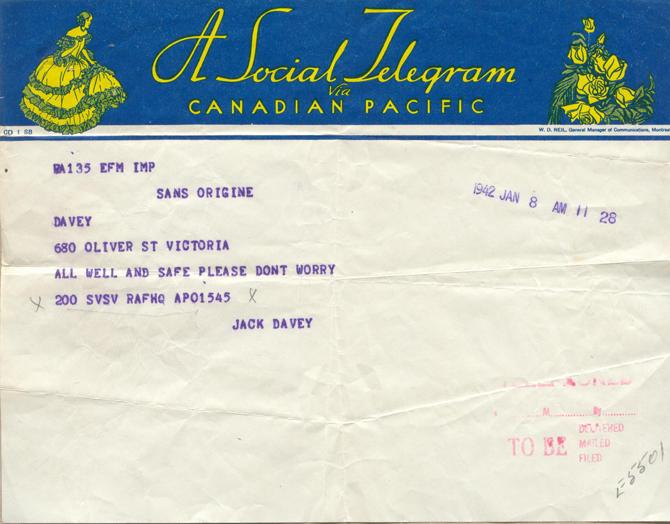 A Social Telegram
Via
CANADIAN PACIFIC
CD 1 SB
W. D. NEIL, General Manager of Communications, Montreal
RA135 EFM IMP
SANS ORIGINE
1942 JAN 8 AM 11 28
DAVEY
680 OLIVER ST VICTORIA
ALL WELL AND SAFE PLEASE DONT WORRY
X 200 SVSV RAFHQ APO1545 X
JACK DAVEY
M By
TO BE
DELIVERED
MAILED
FILED
E-5501